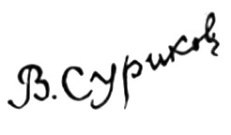 В. Суриковъ